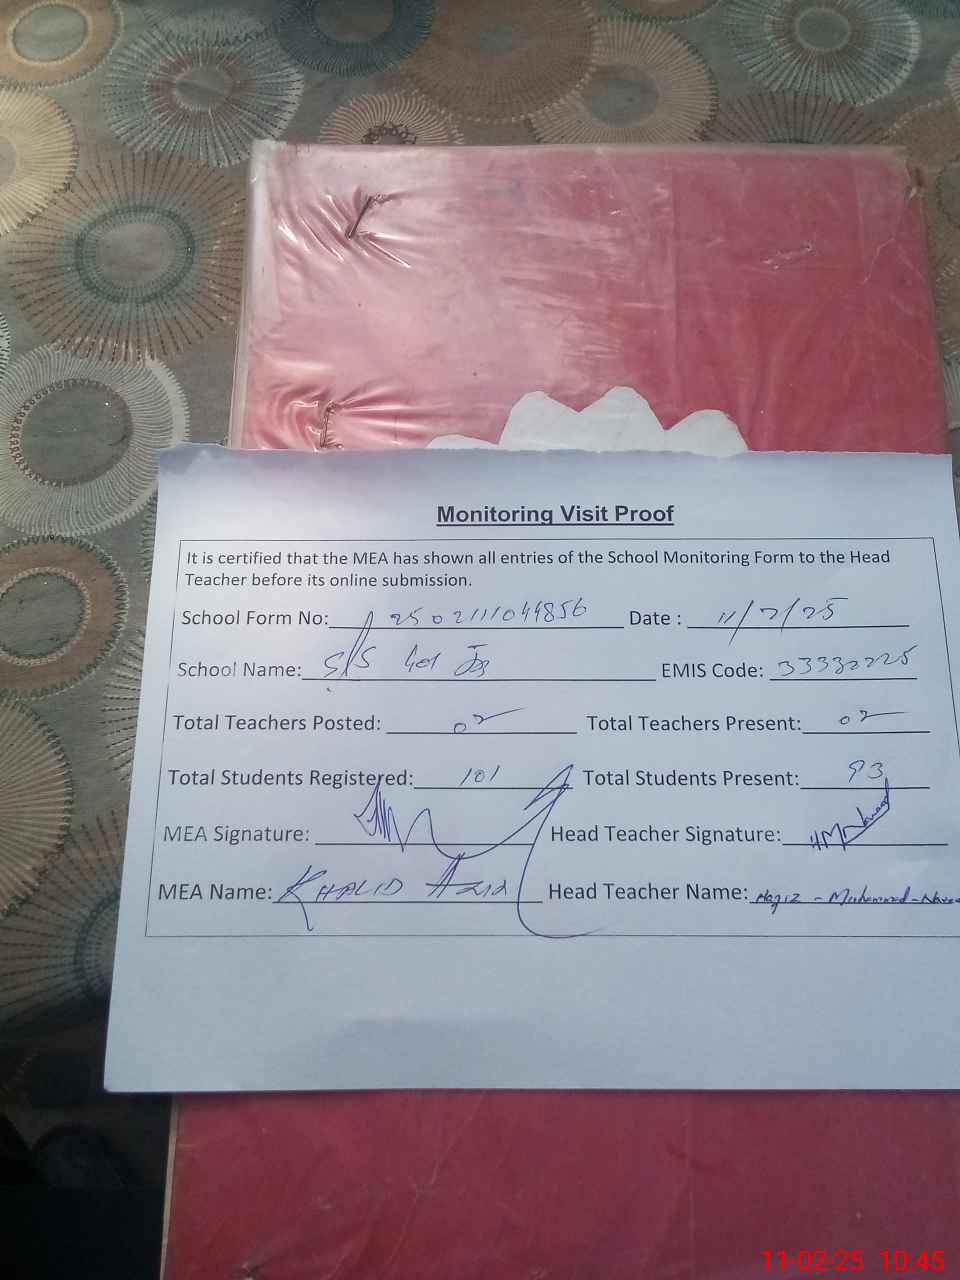 Monitoring Visit Proof
It is certified that the MEA has shown all entries of the School Monitoring Form to the Head
Teacher before its online submission.
School Form No: 2502111044856 Date : 11/2/25
School Name: S/S EMIS Code: 33332225
Total Teachers Posted: 02 Total Teachers Present: 02
Total Students Registered: 101 Total Students Present: 93
MEA Signature: Head Teacher Signature:
MEA Name: KHALID AZIZ Head Teacher Name: Hafiz - Muhammad -
11-02-25 10:45